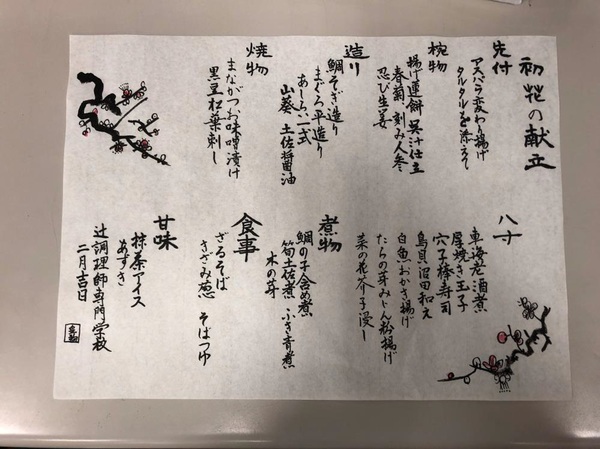 初花の献立
先付
アスパラ変わり揚げ
タルタルを添えて
椀物
揚げ蓮餅 呉汁仕立
春菊 刻み人参
忍び生姜
造り
鯛そぎ造り
まぐろ平造り
あしらい一式
山葵 土佐醤油
焼物
まながつお味噌漬け
黒豆松葉刺し
八寸
車海老酒煮
厚焼き玉子
穴子棒寿司
鳥貝沼田和え
白魚おかき揚げ
たらの芽みじん粉揚げ
菜の花芥子浸し
煮物
鯛の子含め煮
筍土佐煮 ふき青煮
木の芽
食事
ざるそば
きざみ葱 そばつゆ
甘味
抹茶アイス
あずき
辻調理師専門学校
二月吉日